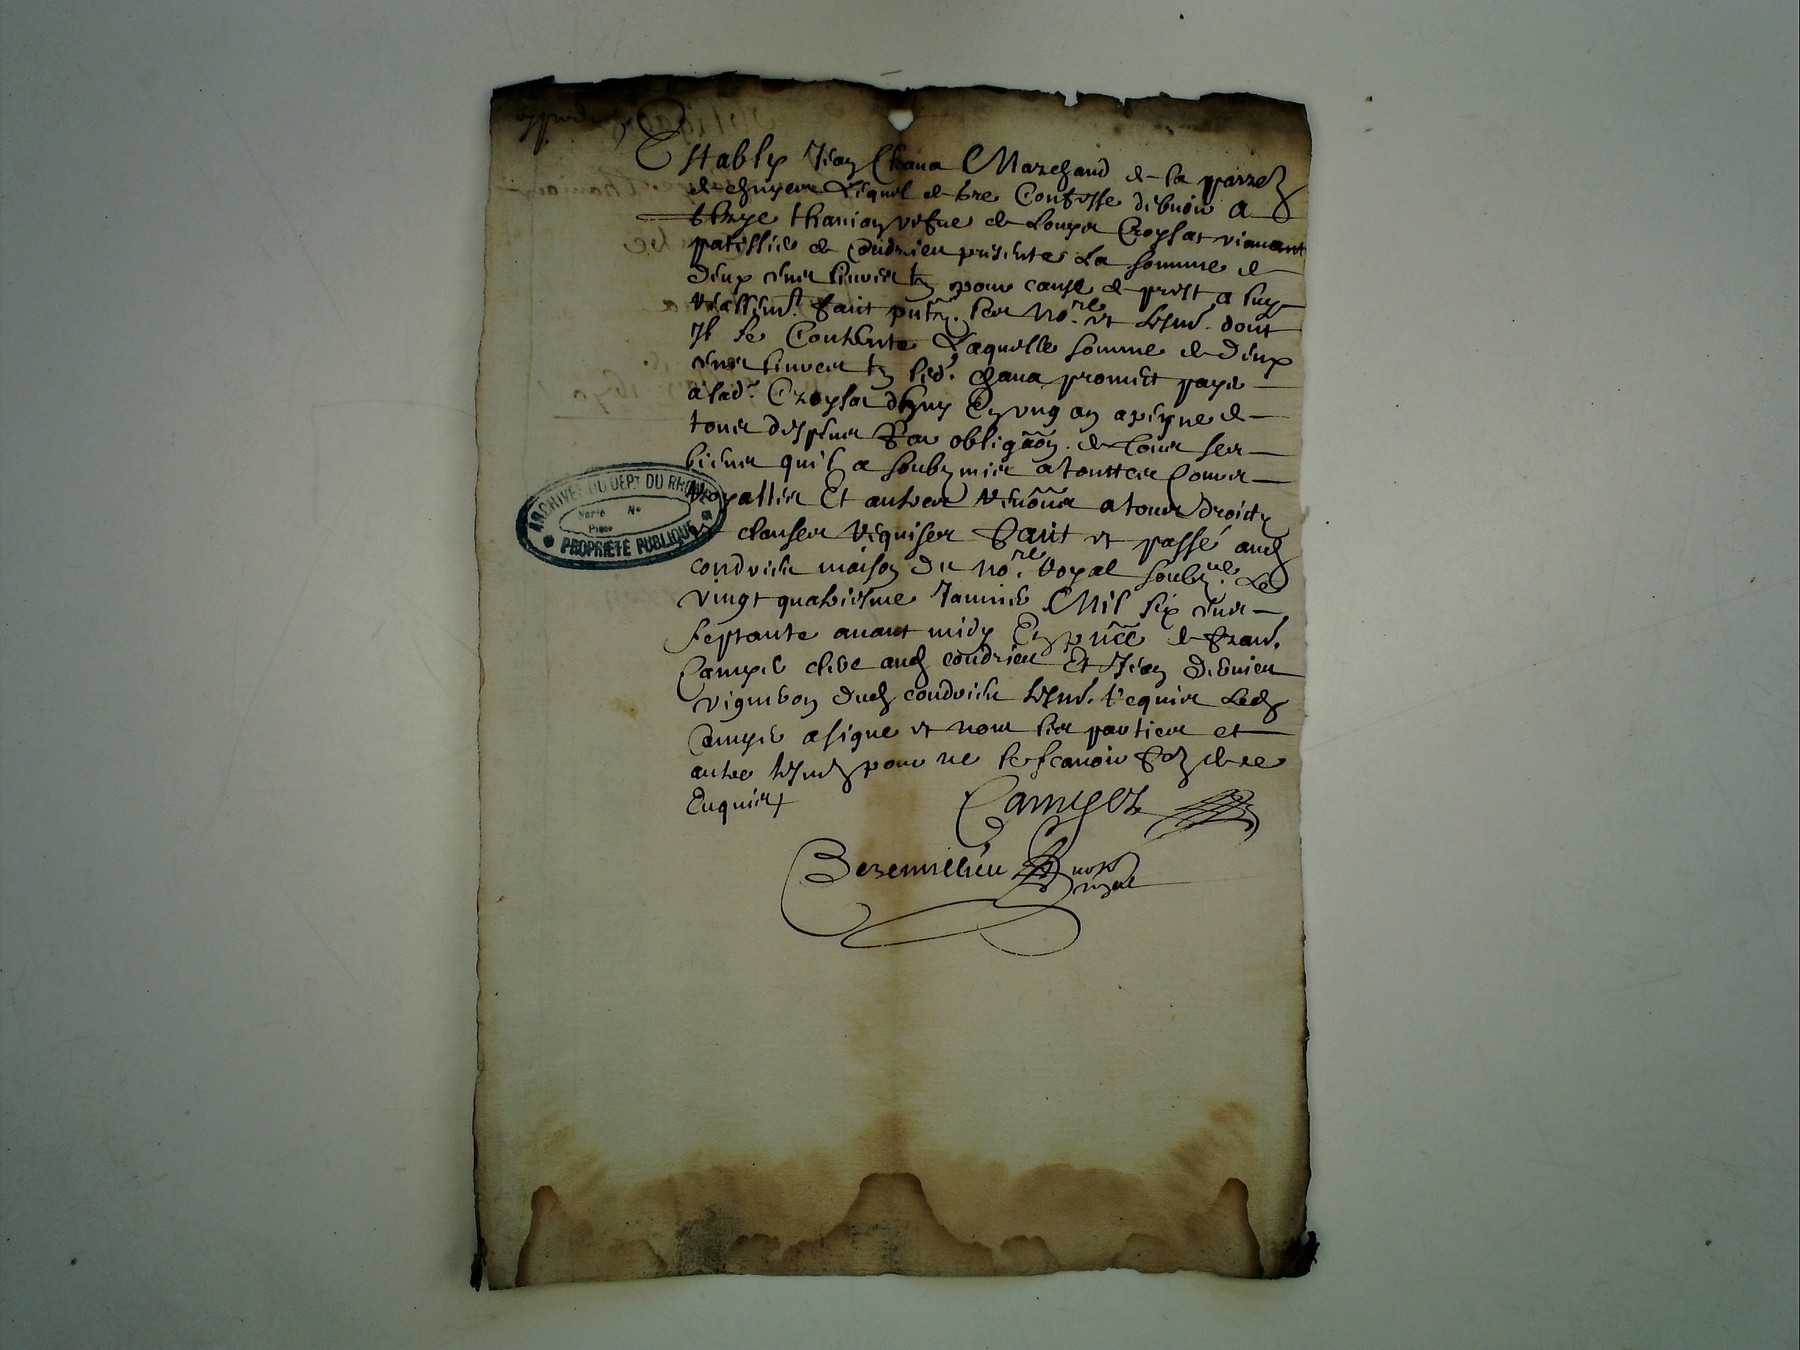 Estably Jean Chana Marchand de la parre
de Chuyere Lequel de gre Confesse debvoir a
thanion vefve de Louys Croysat vivant
patissier de Condrieu presente La somme de
deux cens livres pour cause de prest a luy
reallemt. faict putr. les nore. et tesms. dont
Il se Contente Laquelle somme de deux
cens livres led. Chana promect payer
a lad. Croysat dhuy En ung an a peyne de
tous despens Par obligaôn. de tous ses
biens qu'il a soubzmis a touttes Cours
Royalles Et autres renôns a tous droictz
et clauses requises Faict et passé aud
condrieu maison du nore. Royal soubzne. Le
vingt quatriesme Janvier Mil six cens
septante avant midy En pnĉe de Franc.
Camyer clerc aud condrieu Et Jean
vigneron dud condrieu tesms. requis Led
Camyer a signe et non les parties et
autre tesmg pour ne le scavoir de ce
Enquis
Camyer
Bezemelieu nore
royal
ARCHIVES DU DEPT DU RHÔNE
Serie No
Piece
PROPRIETE PUBLIQUE